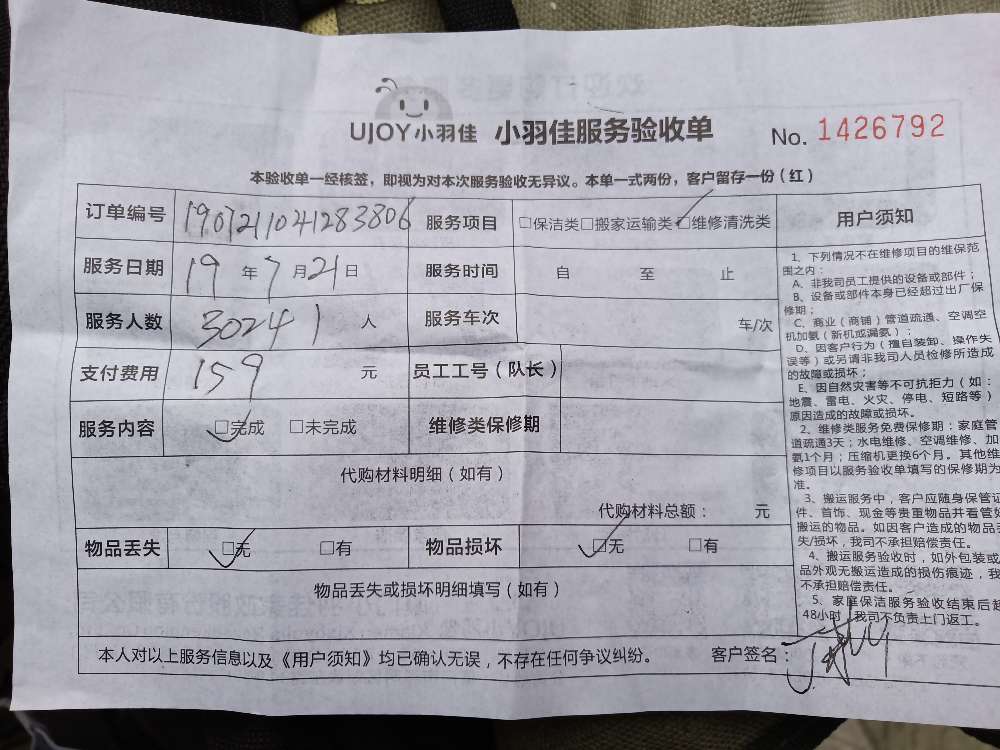 UJOY小羽佳 小羽佳服务验收单 No. 1426792
本验收单一经核签，即视为对本次服务验收无异议。本单一式两份，客户留存一份（红）
订单编号 1907211041283806 服务项目 □保洁类□搬家运输类□维修清洗类
服务日期 19 年 7 月 21 日 服务时间 自 至 止
服务人数 30241 人 服务车次 车/次
支付费用 159 元 员工工号（队长）
服务内容 □完成 □未完成 维修类保修期
代购材料明细（如有）
代购材料总额： 元
物品丢失 □无 □有 物品损坏 □无 □有
物品丢失或损坏明细填写（如有）
本人对以上服务信息以及《用户须知》均已确认无误，不存在任何争议纠纷。 客户签名：
用户须知
1、下列情况不在维修项目的维保范
围之内：
A、非我司员工提供的设备或部件；
B、设备或部件本身已经超过出厂保
修期；
C、商业（商铺）管道疏通、空调空
机加氨（新机或漏氨）；
D、因客户行为（擅自装卸、操作失
误等）或另请非我司人员检修所造成
的故障或损坏；
E、因自然灾害等不可抗拒力（如：
地震、雷电、火灾、停电、短路等）
原因造成的故障或损坏。
2、维修类服务免费保修期：家庭管
道疏通3天；水电维修、空调维修、加
氨1个月；压缩机更换6个月。其他维
修项目以服务验收单填写的保修期为
准。
3、搬运服务中，客户应随身保管证
件、首饰、现金等贵重物品并看管好
搬运的物品。如因客户造成的物品丢
失/损坏，我司不承担赔偿责任。
4、搬运服务验收时，如外包装或
品外观无搬运造成的损伤痕迹，我
不承担赔偿责任。
5、家庭保洁服务验收结束后超
48小时，我司不负责上门返工。